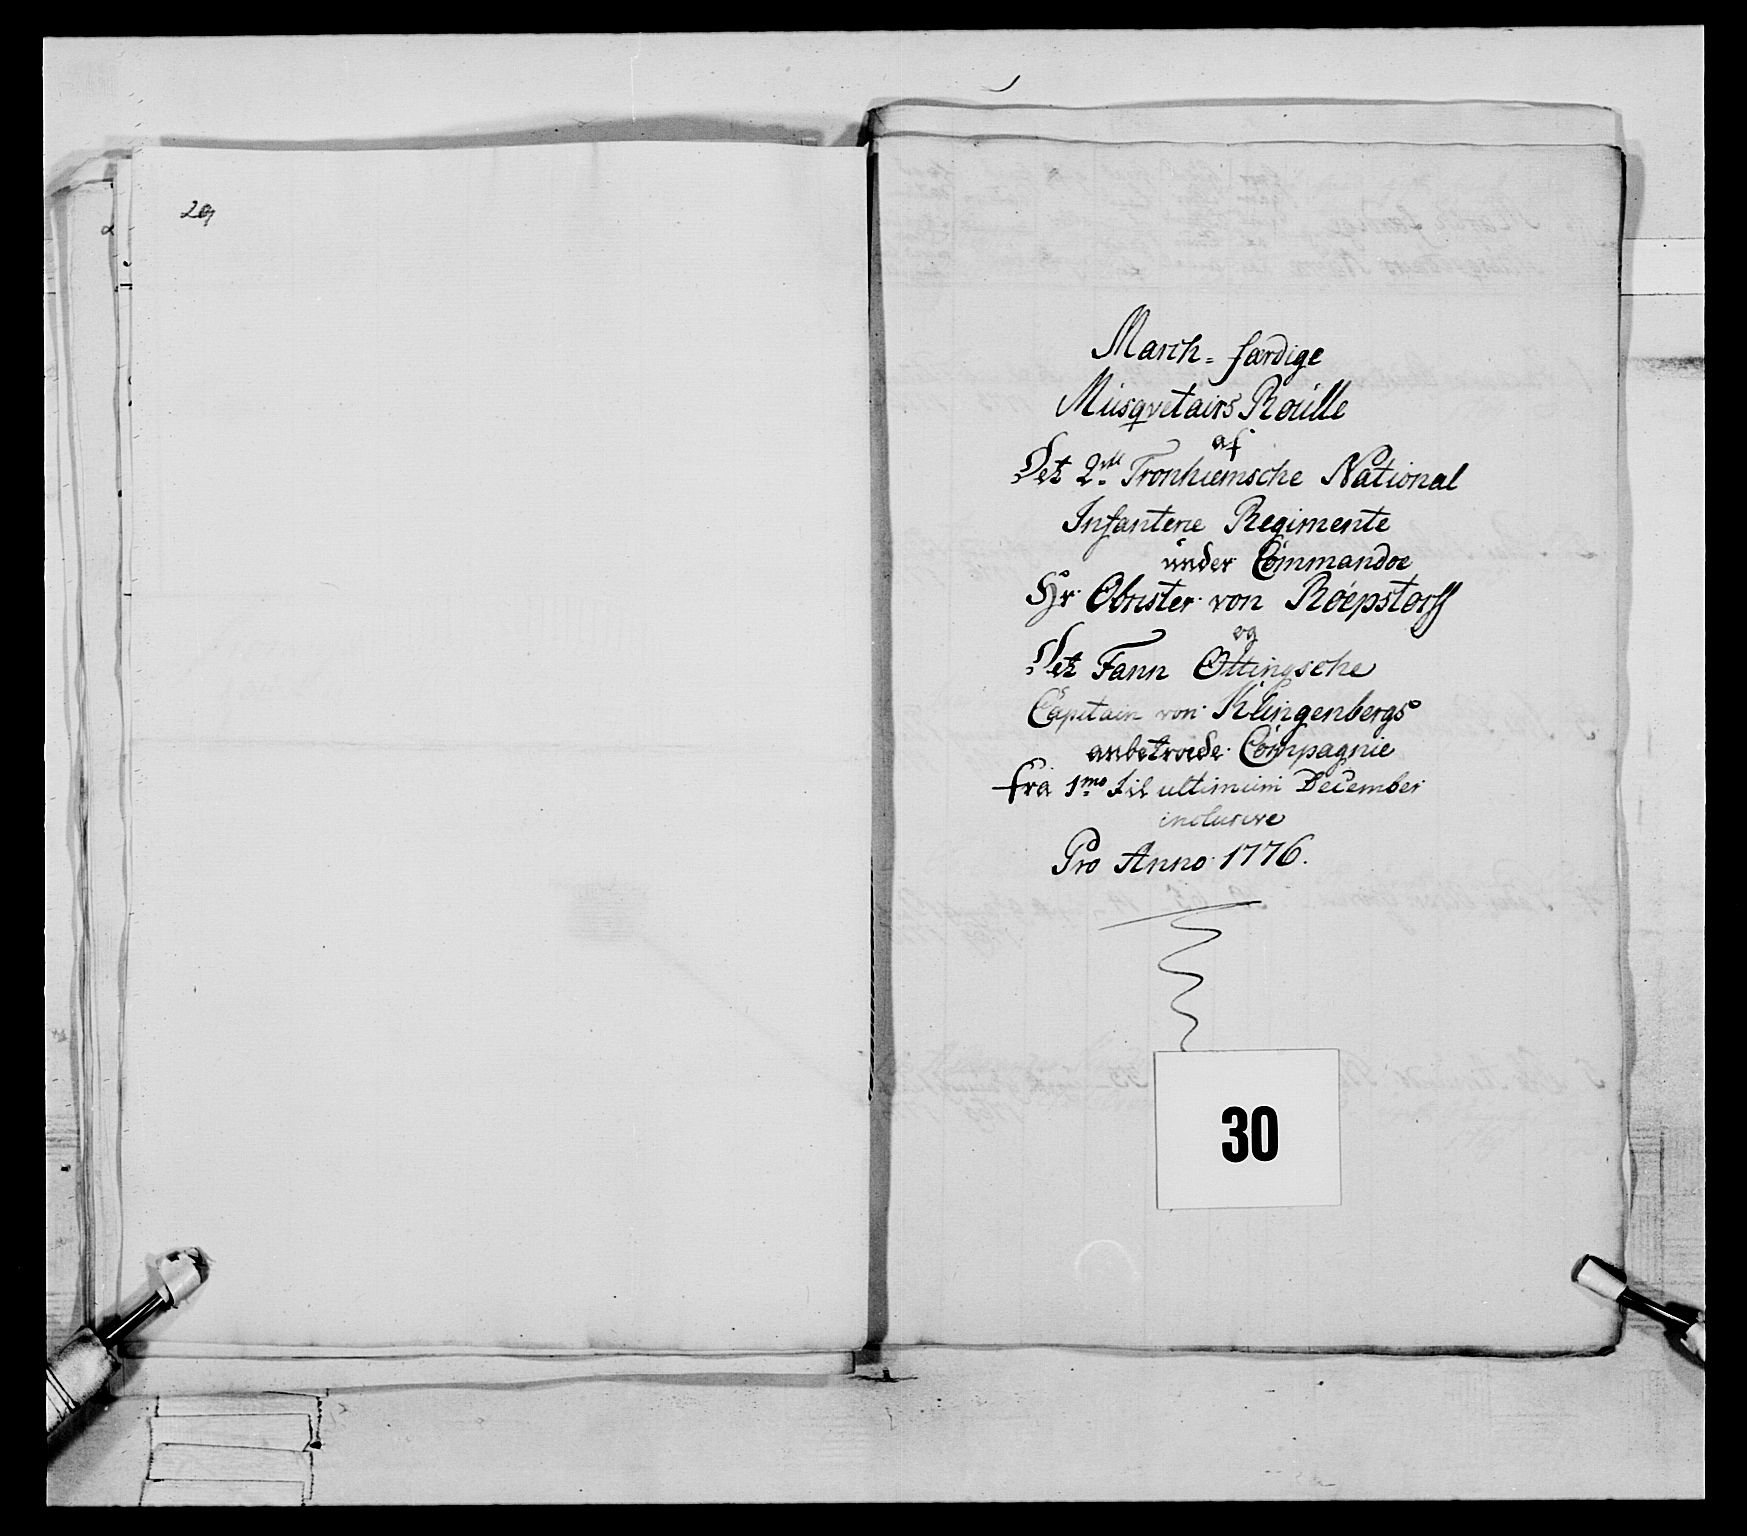 29
March-færdige
Musqvetairs Roulle
af
Det 2det Tronhiemsche National
Infanterie Regimente
under Commandoe
Hr. Obrister von Roepstorff
og
Det Fann Øttingsche
Capitain von Klingenbergs
anbetroede Compagnie
fra 1mo til ultimum December
inclusive
Pro Anno 1776.
30